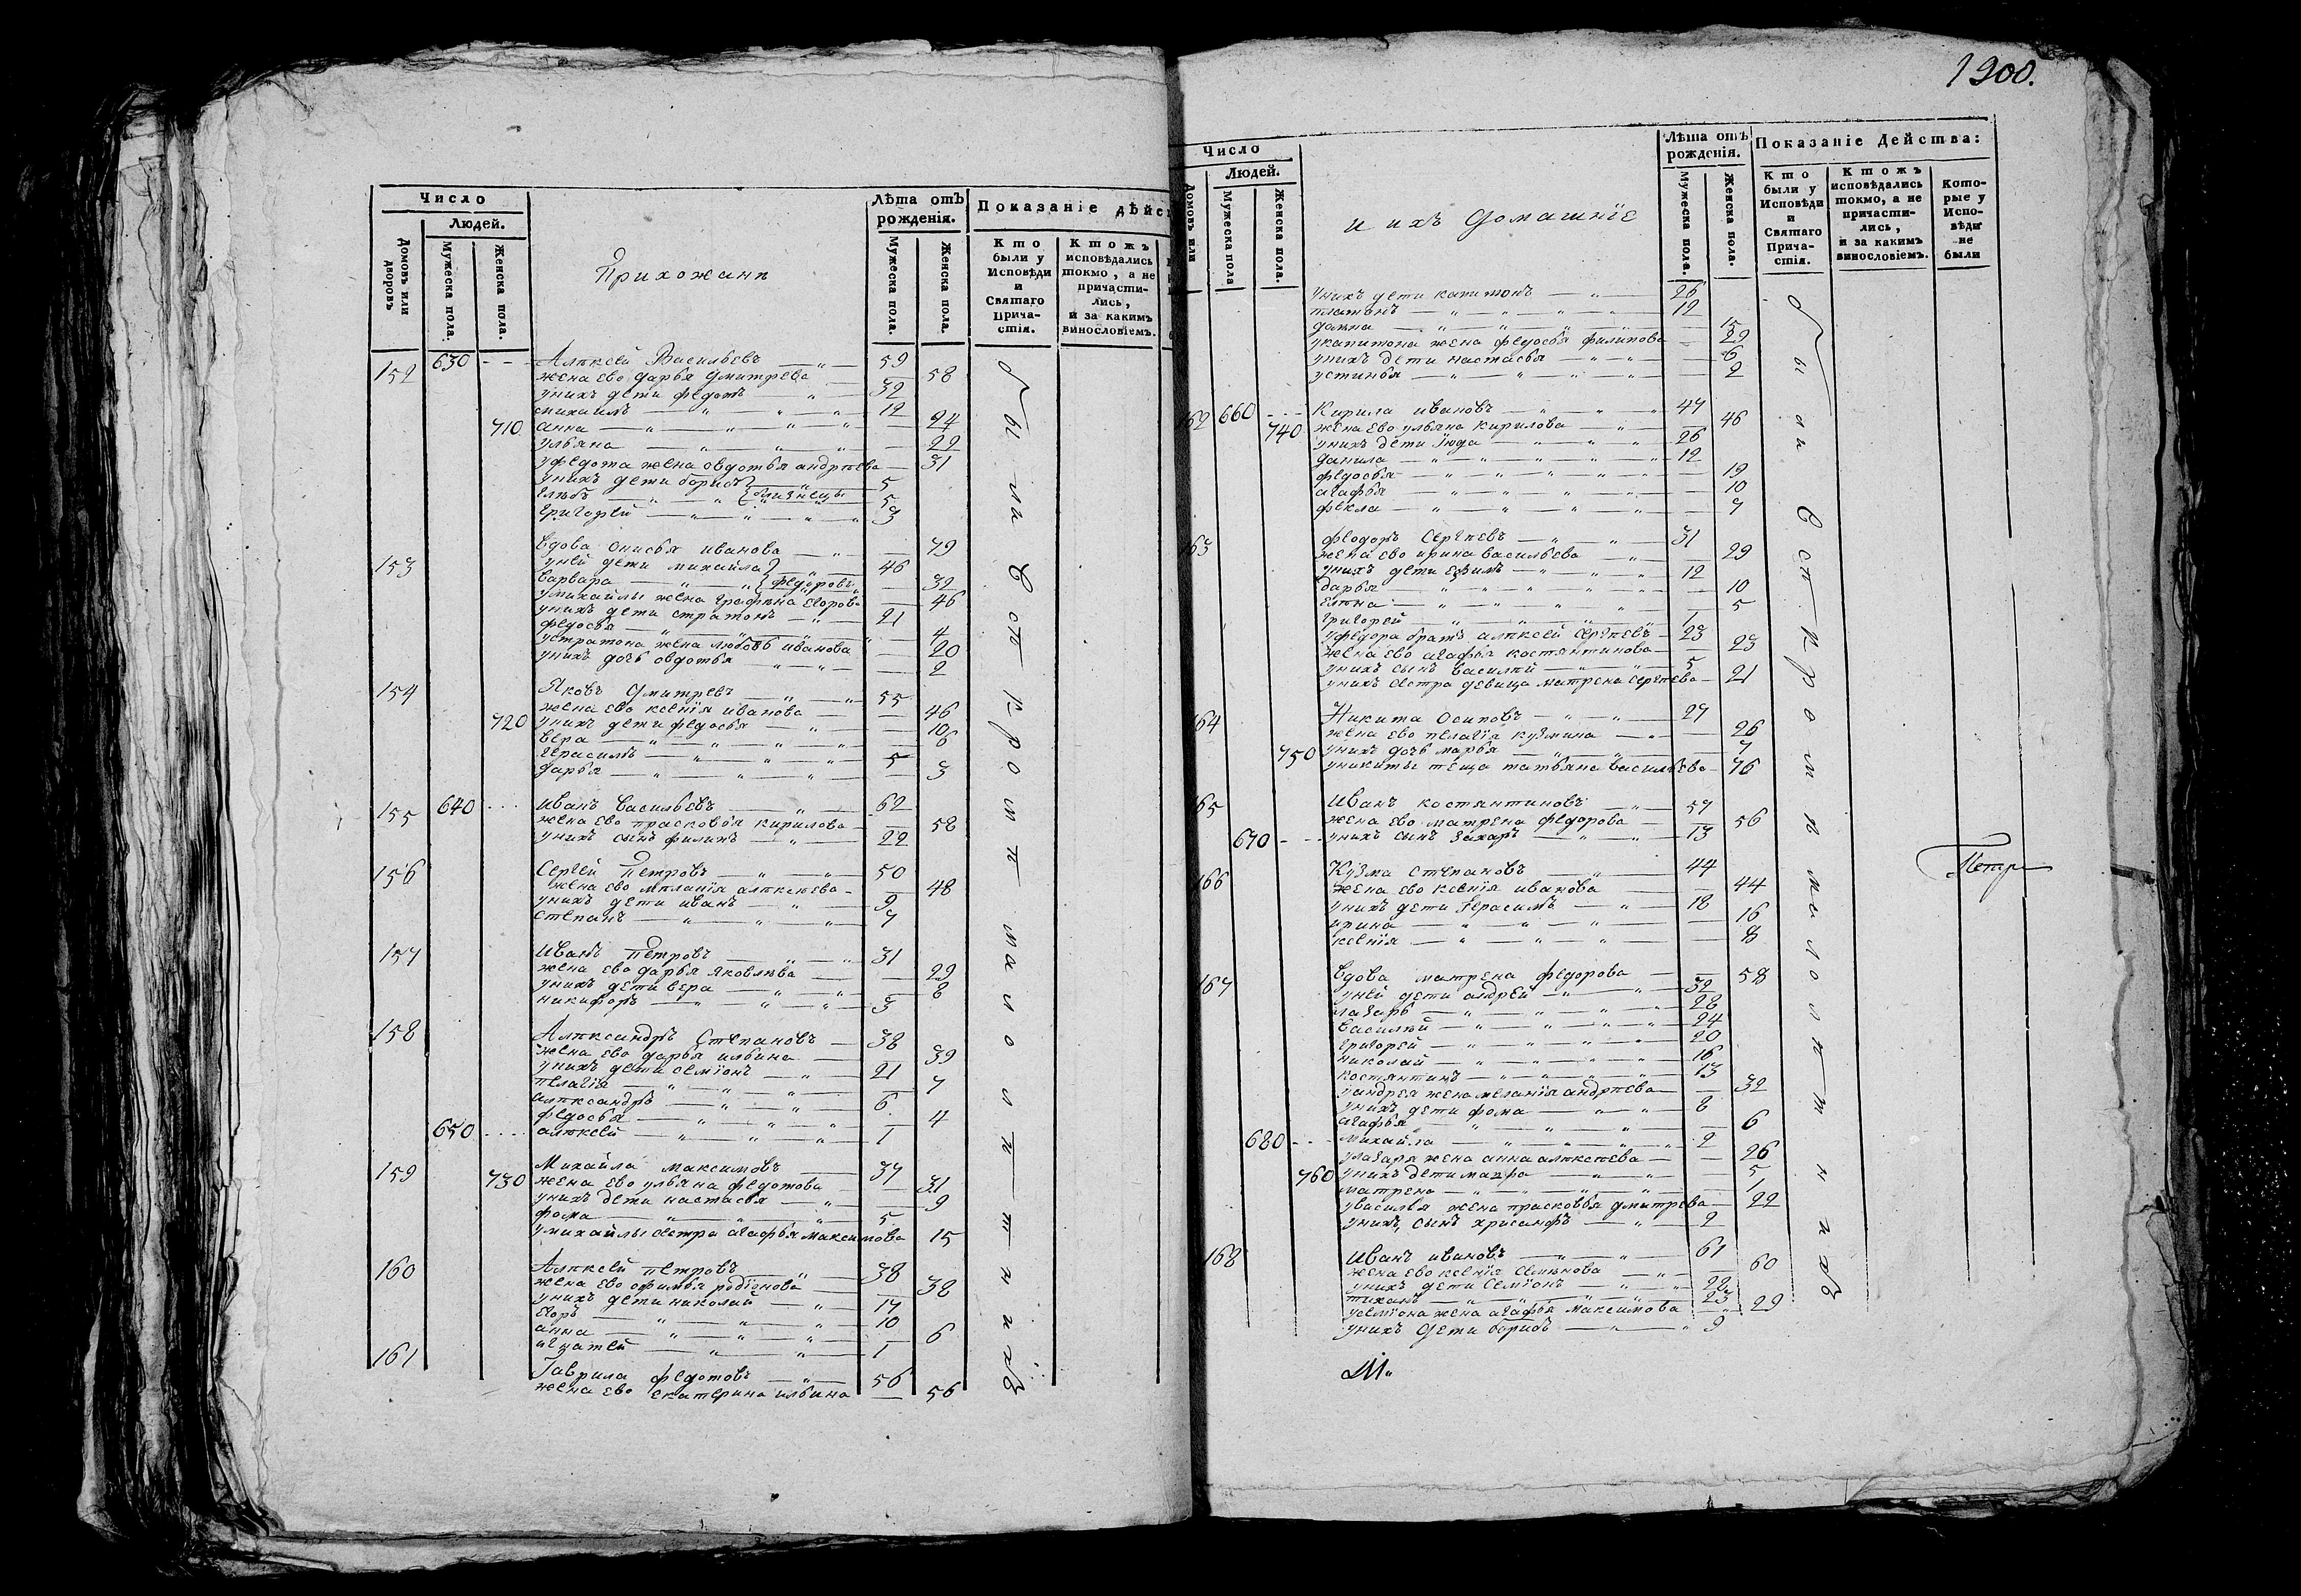 1200.
Число
Людей.
Домовъ или дворовъ
Мужеска пола.
Женска пола.
Прихожани
Лѣта отъ рожденія.
Мужеска пола.
Женска пола.
Показаніе дѣйс
Кто были у Исповѣди и Святаго Прича-стія.
Ктожъ исповѣдались токмо, а не причасти-лись, и за какимъ винословіемъ.
152 630 Алѣксей Васильевъ 59
жена ево дарья дмитрева 58
унихъ дети федотъ 32
михаилъ 12
710 анна 24
ульяна 22
уфедота жена овдотья андрѣева 31
унихъ дети борисъ 5
глѣбъ близнецы 5
григорей 3
153 вдова онисья иванова 79
уней дети михайла 46
варвара федоровы 32
умихайлы жена графена егорова 46
унихъ дети стратонъ 21
федосья 4
устратона жена любовь иванова 20
унихъ дочь овдотья 2
154 Яковъ Дмитревъ 55
жена ево ксенїя иванова 46
720 унихъ дети федосья 10
вера 6
герасимъ 5
дарья 3
155 640 иванъ васильевъ 62
жена ево прасковья кирилова 58
унихъ сынъ филипъ 22
156 Сергей Петровъ 50
жена ево мѣланїя алѣксѣева 48
унихъ дети иванъ 9
степанъ 7
157 Иванъ Петровъ 31
жена ево дарья яковлѣва 29
унихъ дети вера 8
никифоръ 3
158 Алѣксандръ Степановъ 38
жена ево дарья ильина 39
унихъ дети семїонъ 21
пелагїя 7
алѣксандръ 6
федосья 4
650 алѣксей 1
159 Михайла максимовъ 37
730 жена ево ульяна федотова 31
унихъ дети настасья 9
фома 5
умихайлы сестра агафья максимова 15
160 Алѣксей петровъ 38
жена ево офимья родїонова 38
унихъ дети николай 17
егоръ 10
анна 6
игнатей 1
161 Гаврила федотовъ 56
жена ево екатерина ильина 56
были в сп кромѣ малолѣтнихъ
Число
Людей.
Домовъ или
Мужеска пола
Женска пола.
и ихъ домашнїе
Лѣта отъ рожденія.
Мужеска пола.
Женска пола.
Показаніе Действа:
Кто были у Исповѣди и Святаго Прича-стія.
Ктожъ исповѣдались токмо, а не причасти-лись, и за какимъ винословіемъ.
Кото-рые у Испо-вѣди не были
унихъ дети капитонъ 26
платонъ 12
домна 15
укапитона жена федосья филипова 29
унихъ дети настасья 6
устинья 2
162 660 Кирила ивановъ 47
740 жена ево ульяна кирилова 46
унихъ дети їюда 26
данила 12
федосья 19
агафья 10
фекла 7
163 федоръ Сергѣевъ 31
жена ево ирина васильева 29
унихъ дети ефимъ 12
дарья 10
елѣна 5
григорей 1
уфедора братъ алѣксей сергѣевъ 23
жена ево агафья костянтинова 23
унихъ сынъ василѣй 5
унихъ сестра девица матрена сергѣева 21
164 Никита Осиповъ 27
жена ево пелагїя кузмина 26
750 унихъ дочь марья 7
уникиты теща татьяна васильева 76
165 Иванъ костянтиновъ 57
жена ево матрена федорова 56
670 унихъ сынъ захаръ 13
166 Кузма степановъ 44
жена ево ксенїя иванова 44
унихъ дети герасимъ 18
ирина 16
ксенїя 8
167 вдова матрена федорова 58
уней дети андрей 32
лазарь 28
василѣй 24
григорей 20
николай 16
костянтинъ 13
уандрея жена меланїя андрѣева 32
унихъ дети фома 8
агафья 6
680 михайла 2
улазаря жена анна алѣксѣева 26
760 унихъ дети мавра 5
матрена 1
увасилья жена прасковья дмитрева 22
унихъ сынъ хрисанфъ 2
168 Иванъ ивановъ 61
жена ево ксенїя семѣнова 60
унихъ дети семїонъ 28
тиханъ 23
усемїона жена агафья максимова 29
унихъ дети борисъ 9
были в сп кромѣ малолѣтнихъ
Петр